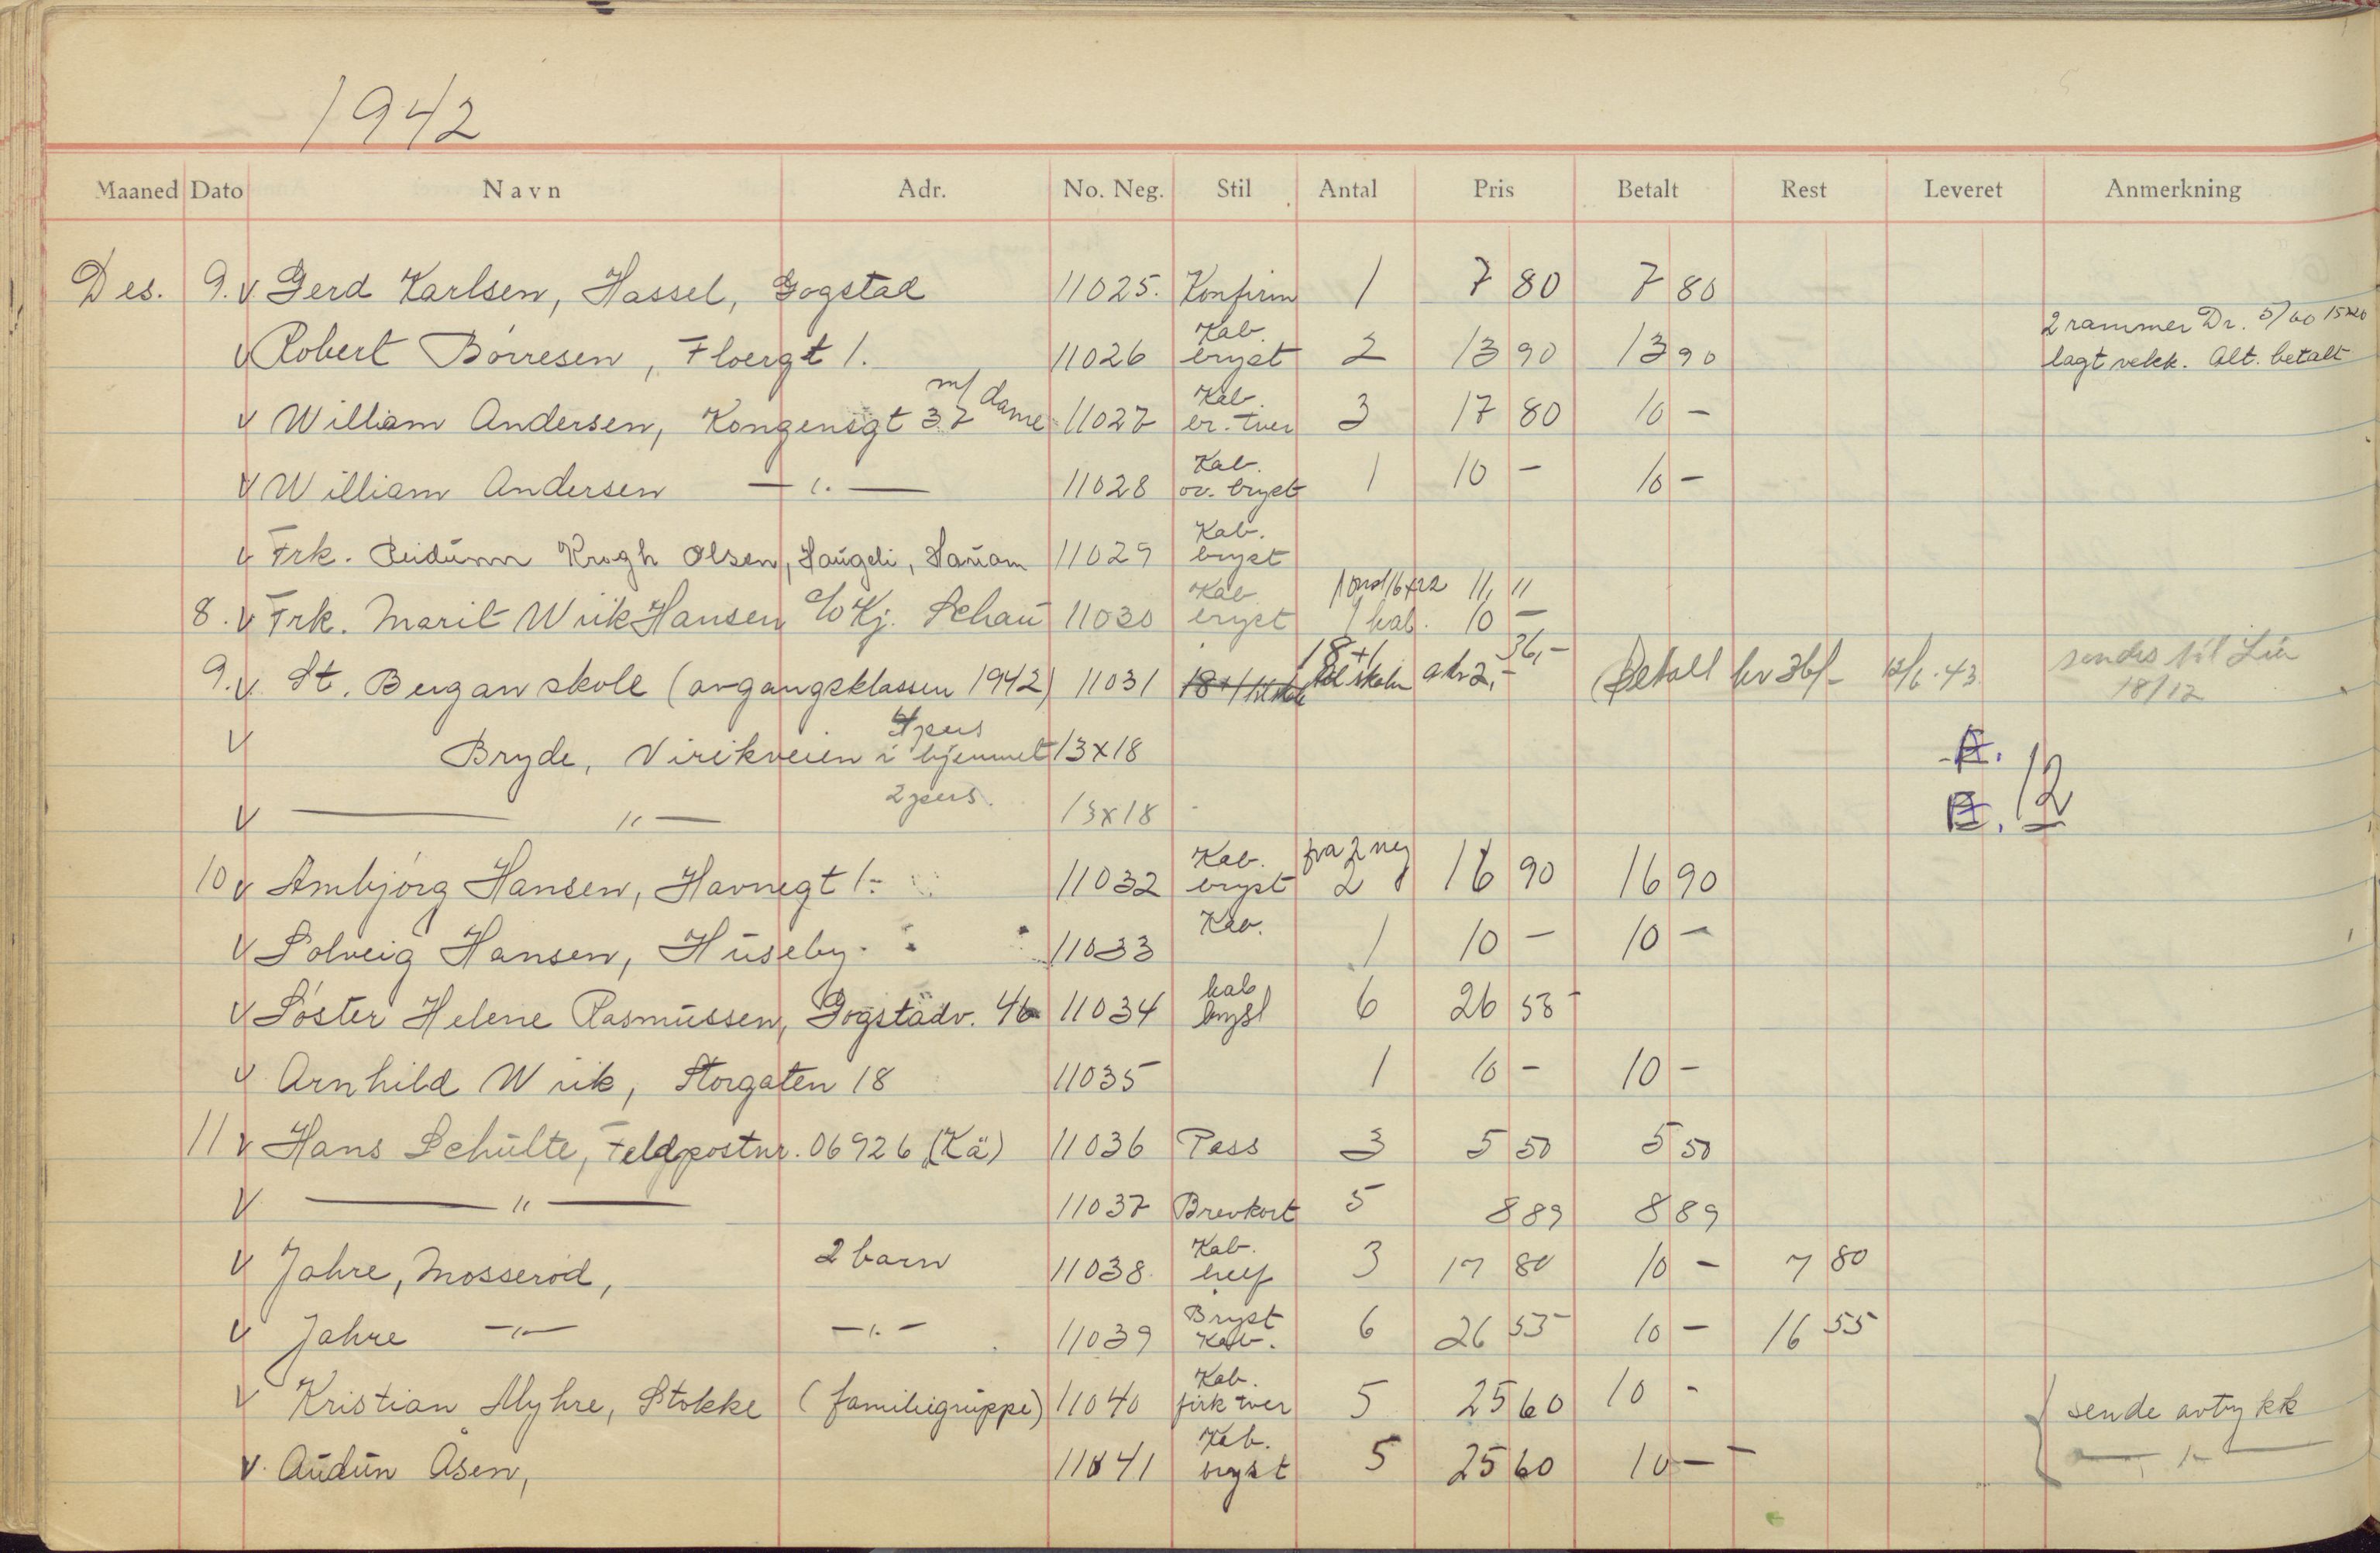 1942
Maaned Dato Navn Adr. No. Neg. Stil Antal Pris Betalt Rest Leveret Anmerkning
Des. 9. v Gerd Karlsen, Hassel, Gogstad 11025. Konfirm 1 7 80 7 80
v Robert Börresen, Floergt 1. 11026 Kab. bryst 2 13 90 13 90 2 rammer Dr. lagt vekk. Alt. betalt
v William Andersen, Kongensgt 37 m/ dame 11027 Kab. br. tver 3 17 80 10 -
v William Andersen — " — 11028 Kab. ov. bryst 1 10 - 10 -
v Frk. Reidunn Krogh Olsen, Haugeli, 11029 Kab. bryst
8. v Frk. Marit Wiik Hansen c/o Kj. Schau 11030 Kab bryst 1 16x22 11, 11 1 kab. 10 -
9. v St. Bergan skole (avgangsklassen 1942) 11031 18+1 til skolen a kr 2,- 36,- Betalt kr 36/- 12/1. 43 sendes til 18/12
v Bryde, Virikveien i hjemmet 4 pers 13x18 A.
v — " — 2 pers. 13x18 B. 12
10 v Ambjörg Hansen, Havnegt 1. 11032 Kab. bryst fra 2 neg 2 16 90 16 90
v Solveig Hansen, Huseby. 11033 Kab. 1 10 - 10 -
v Söster Helene Rasmussen, Gogstadv. 46 11034 kab bryst 6 26 55
v Arnhild Wiik, Storgaten 18 11035 1 10 - 10 -
11 v Hans Schulte, Feldpostnr. 06926 (Kä) 11036 Pass 3 5 50 5 50
v — " — 11037 Brevkort 5 8 89 8 89
v Jahre, Mosseröd, 2 barn 11038. Kab. helf 3 17 80 10 - 7 80
v Jahre — " — — " — 11039 Bryst Kab. 6 26 55 10 - 16 55
v Kristian Myhre, Stokke (familiegruppe) 11040 Kab. tver 5 25 60 10 - sende avtrykk
v. Audun Åsen, 11041 Kab. bryst 5 25 60 10 - — " —